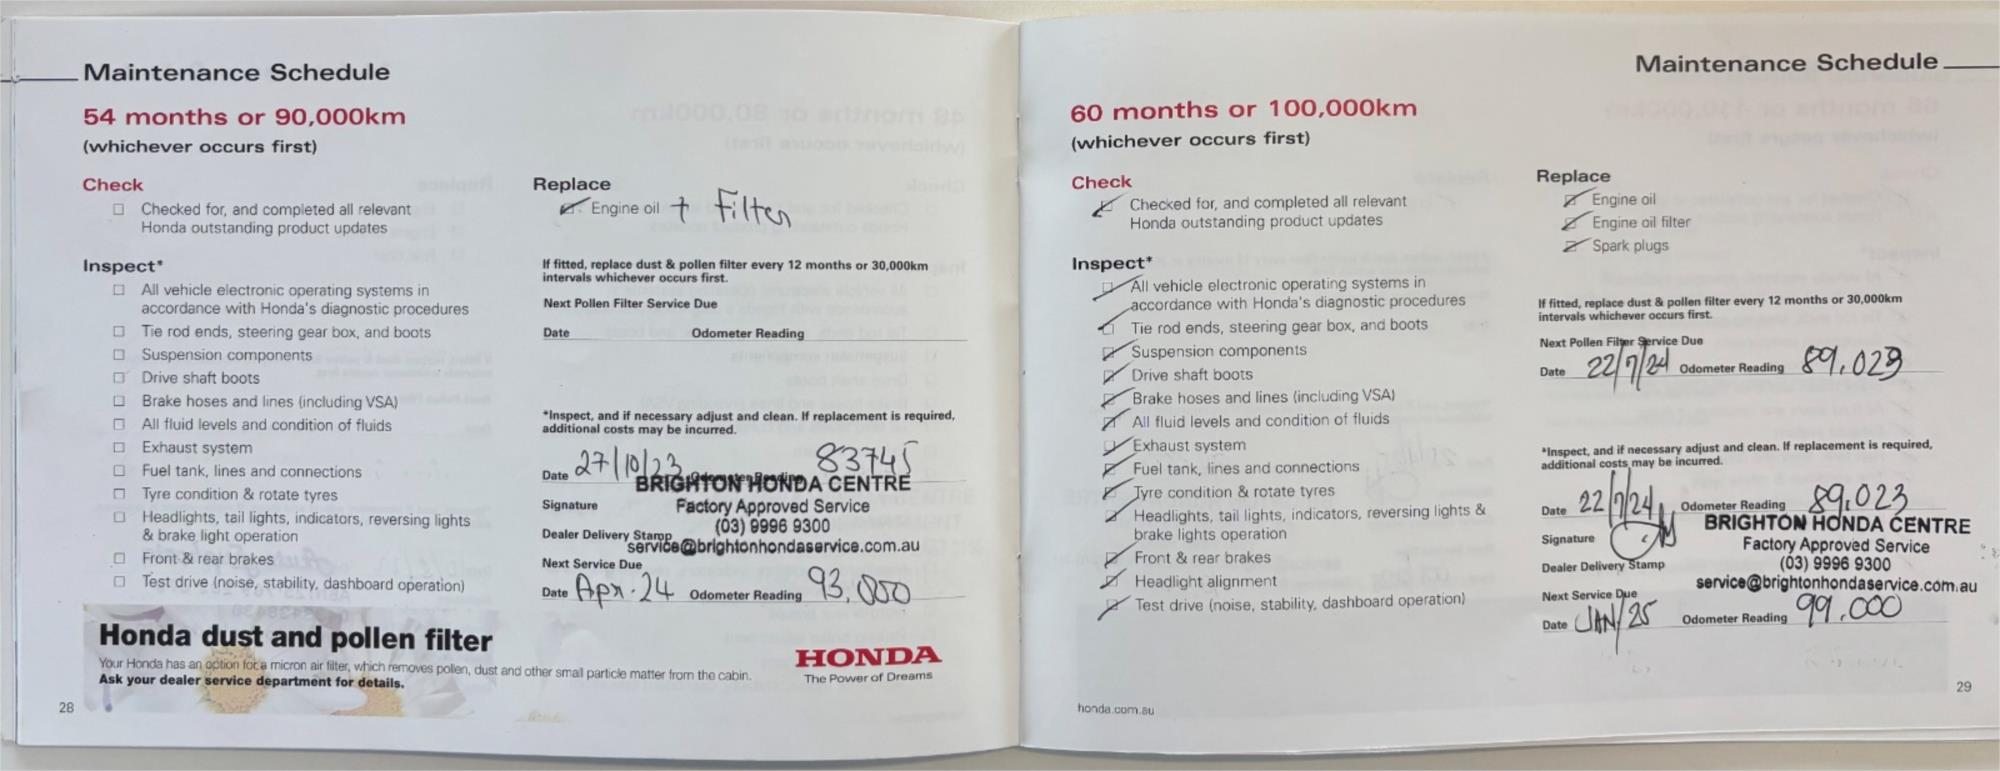 Maintenance Schedule
54 months or 90,000km
(whichever occurs first)
Check
Checked for, and completed all relevant
Honda outstanding product updates
Inspect*
All vehicle electronic operating systems in
accordance with Honda's diagnostic procedures
Tie rod ends, steering gear box, and boots
Suspension components
Drive shaft boots
Brake hoses and lines (including VSA)
All fluid levels and condition of fluids
Exhaust system
Fuel tank, lines and connections
Tyre condition & rotate tyres
Headlights, tail lights, indicators, reversing lights
& brake light operation
Front & rear brakes
Test drive (noise, stability, dashboard operation)
Replace
Engine oil + Filter
If fitted, replace dust & pollen filter every 12 months or 30,000km
intervals whichever occurs first.
Next Pollen Filter Service Due
Date Odometer Reading
*Inspect, and if necessary adjust and clean. If replacement is required,
additional costs may be incurred.
Date 27/10/23 Odometer Reading 83745
BRIGHTON HONDA CENTRE
Signature Factory Approved Service
(03) 9996 9300
Dealer Delivery Stamp
service@brightonhondaservice.com.au
Next Service Due
Date Apr.24 Odometer Reading 93,000
Honda dust and pollen filter
Your Honda has an option for a micron air filter, which removes pollen, dust and other small particle matter from the cabin.
Ask your dealer service department for details.
HONDA
The Power of Dreams
28
Maintenance Schedule
60 months or 100,000km
(whichever occurs first)
Check
Checked for, and completed all relevant
Honda outstanding product updates
Inspect*
All vehicle electronic operating systems in
accordance with Honda's diagnostic procedures
Tie rod ends, steering gear box, and boots
Suspension components
Drive shaft boots
Brake hoses and lines (including VSA)
All fluid levels and condition of fluids
Exhaust system
Fuel tank, lines and connections
Tyre condition & rotate tyres
Headlights, tail lights, indicators, reversing lights &
brake lights operation
Front & rear brakes
Headlight alignment
Test drive (noise, stability, dashboard operation)
Replace
Engine oil
Engine oil filter
Spark plugs
If fitted, replace dust & pollen filter every 12 months or 30,000km
intervals whichever occurs first.
Next Pollen Filter Service Due
Date 22/7/24 Odometer Reading 89,023
*Inspect, and if necessary adjust and clean. If replacement is required,
additional costs may be incurred.
Date 22/7/24 Odometer Reading 89,023
BRIGHTON HONDA CENTRE
Signature
Factory Approved Service
Dealer Delivery Stamp (03) 9996 9300
service@brightonhondaservice.com.au
Next Service Due
Date JAN/25 Odometer Reading 99,000
honda.com.au
29